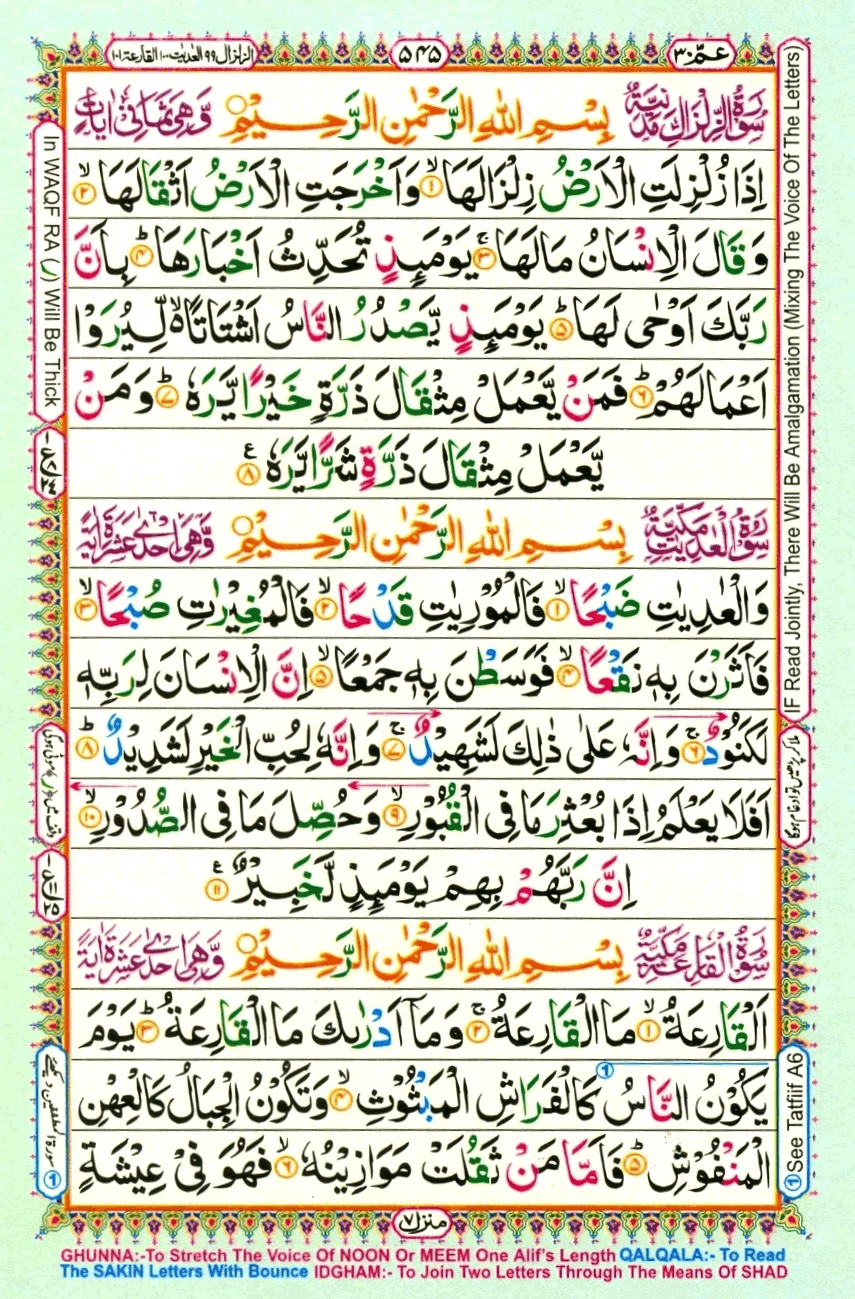 عَمَّ ٣٠
۵۴۵
الزلزال ٩٩ العٰديٰت ١٠٠ القارعة ١٠١
سُوْرَةُ الزِّلْزَالِ مَدَنِيَّةٌ بِسْمِ اللهِ الرَّحْمٰنِ الرَّحِيْمِ وَّهِيَ ثَمَانِيْ اٰيَاتٍ
اِذَا زُلْزِلَتِ الْاَرْضُ زِلْزَالَهَا ۙ﴿١﴾ وَاَخْرَجَتِ الْاَرْضُ اَثْقَالَهَا ۙ﴿٢﴾
وَقَالَ الْاِنْسَانُ مَا لَهَا ۚ﴿٣﴾ يَوْمَىِٕذٍ تُحَدِّثُ اَخْبَارَهَا ؕ﴿٤﴾ بِاَنَّ
رَبَّكَ اَوْحٰى لَهَا ؕ﴿٥﴾ يَوْمَىِٕذٍ يَّصْدُرُ النَّاسُ اَشْتَاتًا ۙ۬ لِّيُرَوْا
اَعْمَالَهُمْ ؕ﴿٦﴾ فَمَنْ يَّعْمَلْ مِثْقَالَ ذَرَّةٍ خَيْرًا يَّرَهٗ ؕ﴿٧﴾ وَمَنْ
يَّعْمَلْ مِثْقَالَ ذَرَّةٍ شَرًّا يَّرَهٗ ﴿٨﴾ ع
سُوْرَةُ الْعٰدِيٰتِ مَكِّيَّةٌ بِسْمِ اللهِ الرَّحْمٰنِ الرَّحِيْمِ وَّهِيَ اِحْدٰى عَشْرَةَ اٰيَةً
وَالْعٰدِيٰتِ ضَبْحًا ۙ﴿١﴾ فَالْمُوْرِيٰتِ قَدْحًا ۙ﴿٢﴾ فَالْمُغِيْرٰتِ صُبْحًا ۙ﴿٣﴾
فَاَثَرْنَ بِهٖ نَقْعًا ۙ﴿٤﴾ فَوَسَطْنَ بِهٖ جَمْعًا ۙ﴿٥﴾ اِنَّ الْاِنْسَانَ لِرَبِّهٖ
لَكَنُوْدٌ ۚ﴿٦﴾ وَاِنَّهٗ عَلٰى ذٰلِكَ لَشَهِيْدٌ ۚ﴿٧﴾ وَاِنَّهٗ لِحُبِّ الْخَيْرِ لَشَدِيْدٌ ؕ﴿٨﴾
اَفَلَا يَعْلَمُ اِذَا بُعْثِرَ مَا فِى الْقُبُوْرِ ۙ﴿٩﴾ وَحُصِّلَ مَا فِى الصُّدُوْرِ ۙ﴿١٠﴾
اِنَّ رَبَّهُمْ بِهِمْ يَوْمَىِٕذٍ لَّخَبِيْرٌ ﴿١١﴾ ع
سُوْرَةُ الْقَارِعَةِ مَكِّيَّةٌ بِسْمِ اللهِ الرَّحْمٰنِ الرَّحِيْمِ وَّهِيَ اِحْدٰى عَشْرَةَ اٰيَةً
اَلْقَارِعَةُ ۙ﴿١﴾ مَا الْقَارِعَةُ ۚ﴿٢﴾ وَمَاۤ اَدْرٰىكَ مَا الْقَارِعَةُ ؕ﴿٣﴾ يَوْمَ
يَكُوْنُ النَّاسُ كَالْفَرَاشِ الْمَبْثُوْثِ ۙ﴿٤﴾ وَتَكُوْنُ الْجِبَالُ كَالْعِهْنِ
الْمَنْفُوْشِ ؕ﴿٥﴾ فَاَمَّا مَنْ ثَقُلَتْ مَوَازِيْنُهٗ ۙ﴿٦﴾ فَهُوَ فِىْ عِيْشَةٍ
منزل ٧
IF Read Jointly, There Will Be Amalgamation (Mixing The Voice Of The Letters)
① See Tatfiif A6
In WAQF RA (ر) Will Be Thick
GHUNNA:-To Stretch The Voice Of NOON Or MEEM One Alif's Length QALQALA:- To Read
The SAKIN Letters With Bounce IDGHAM:- To Join Two Letters Through The Means Of SHAD